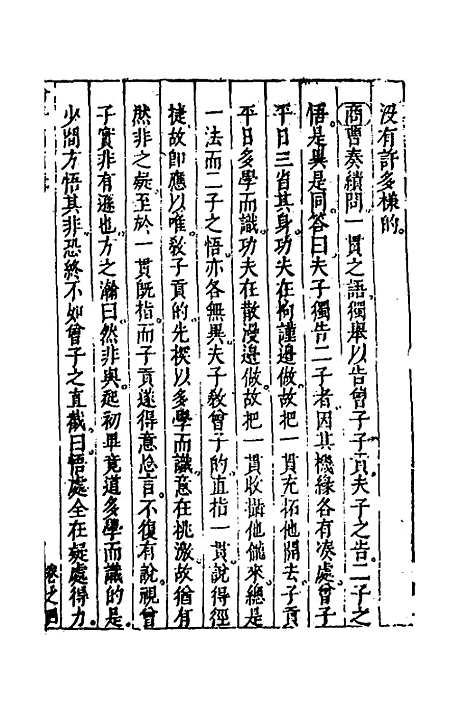 没有許多樣的
商曹奏績問一貫之語獨舉以告曾子子貢夫子之告二子之
悟是異是同答曰夫子獨告二子者因其機緣各有湊處曾子
平日三省其身功夫在拘謹邊做故把一貫充拓他開去子貢
平日多學而識功夫在散漫邊做故把一貫收攝他來總是
一法而二子之悟亦各無異夫子敎曾子的直指一貫說得徑
捷故卽應以唯敎子貢的先探以多學而識意在挑激故猶有
然非之疑至於一貫旣指而子貢遂得意忘言不復有說視曾
子實非有遜也方之瀚曰然非與起初畢竟道多學而識的是
少間方悟其非恐終不如曾子之直截曰悟處全在疑處得力
卷之四